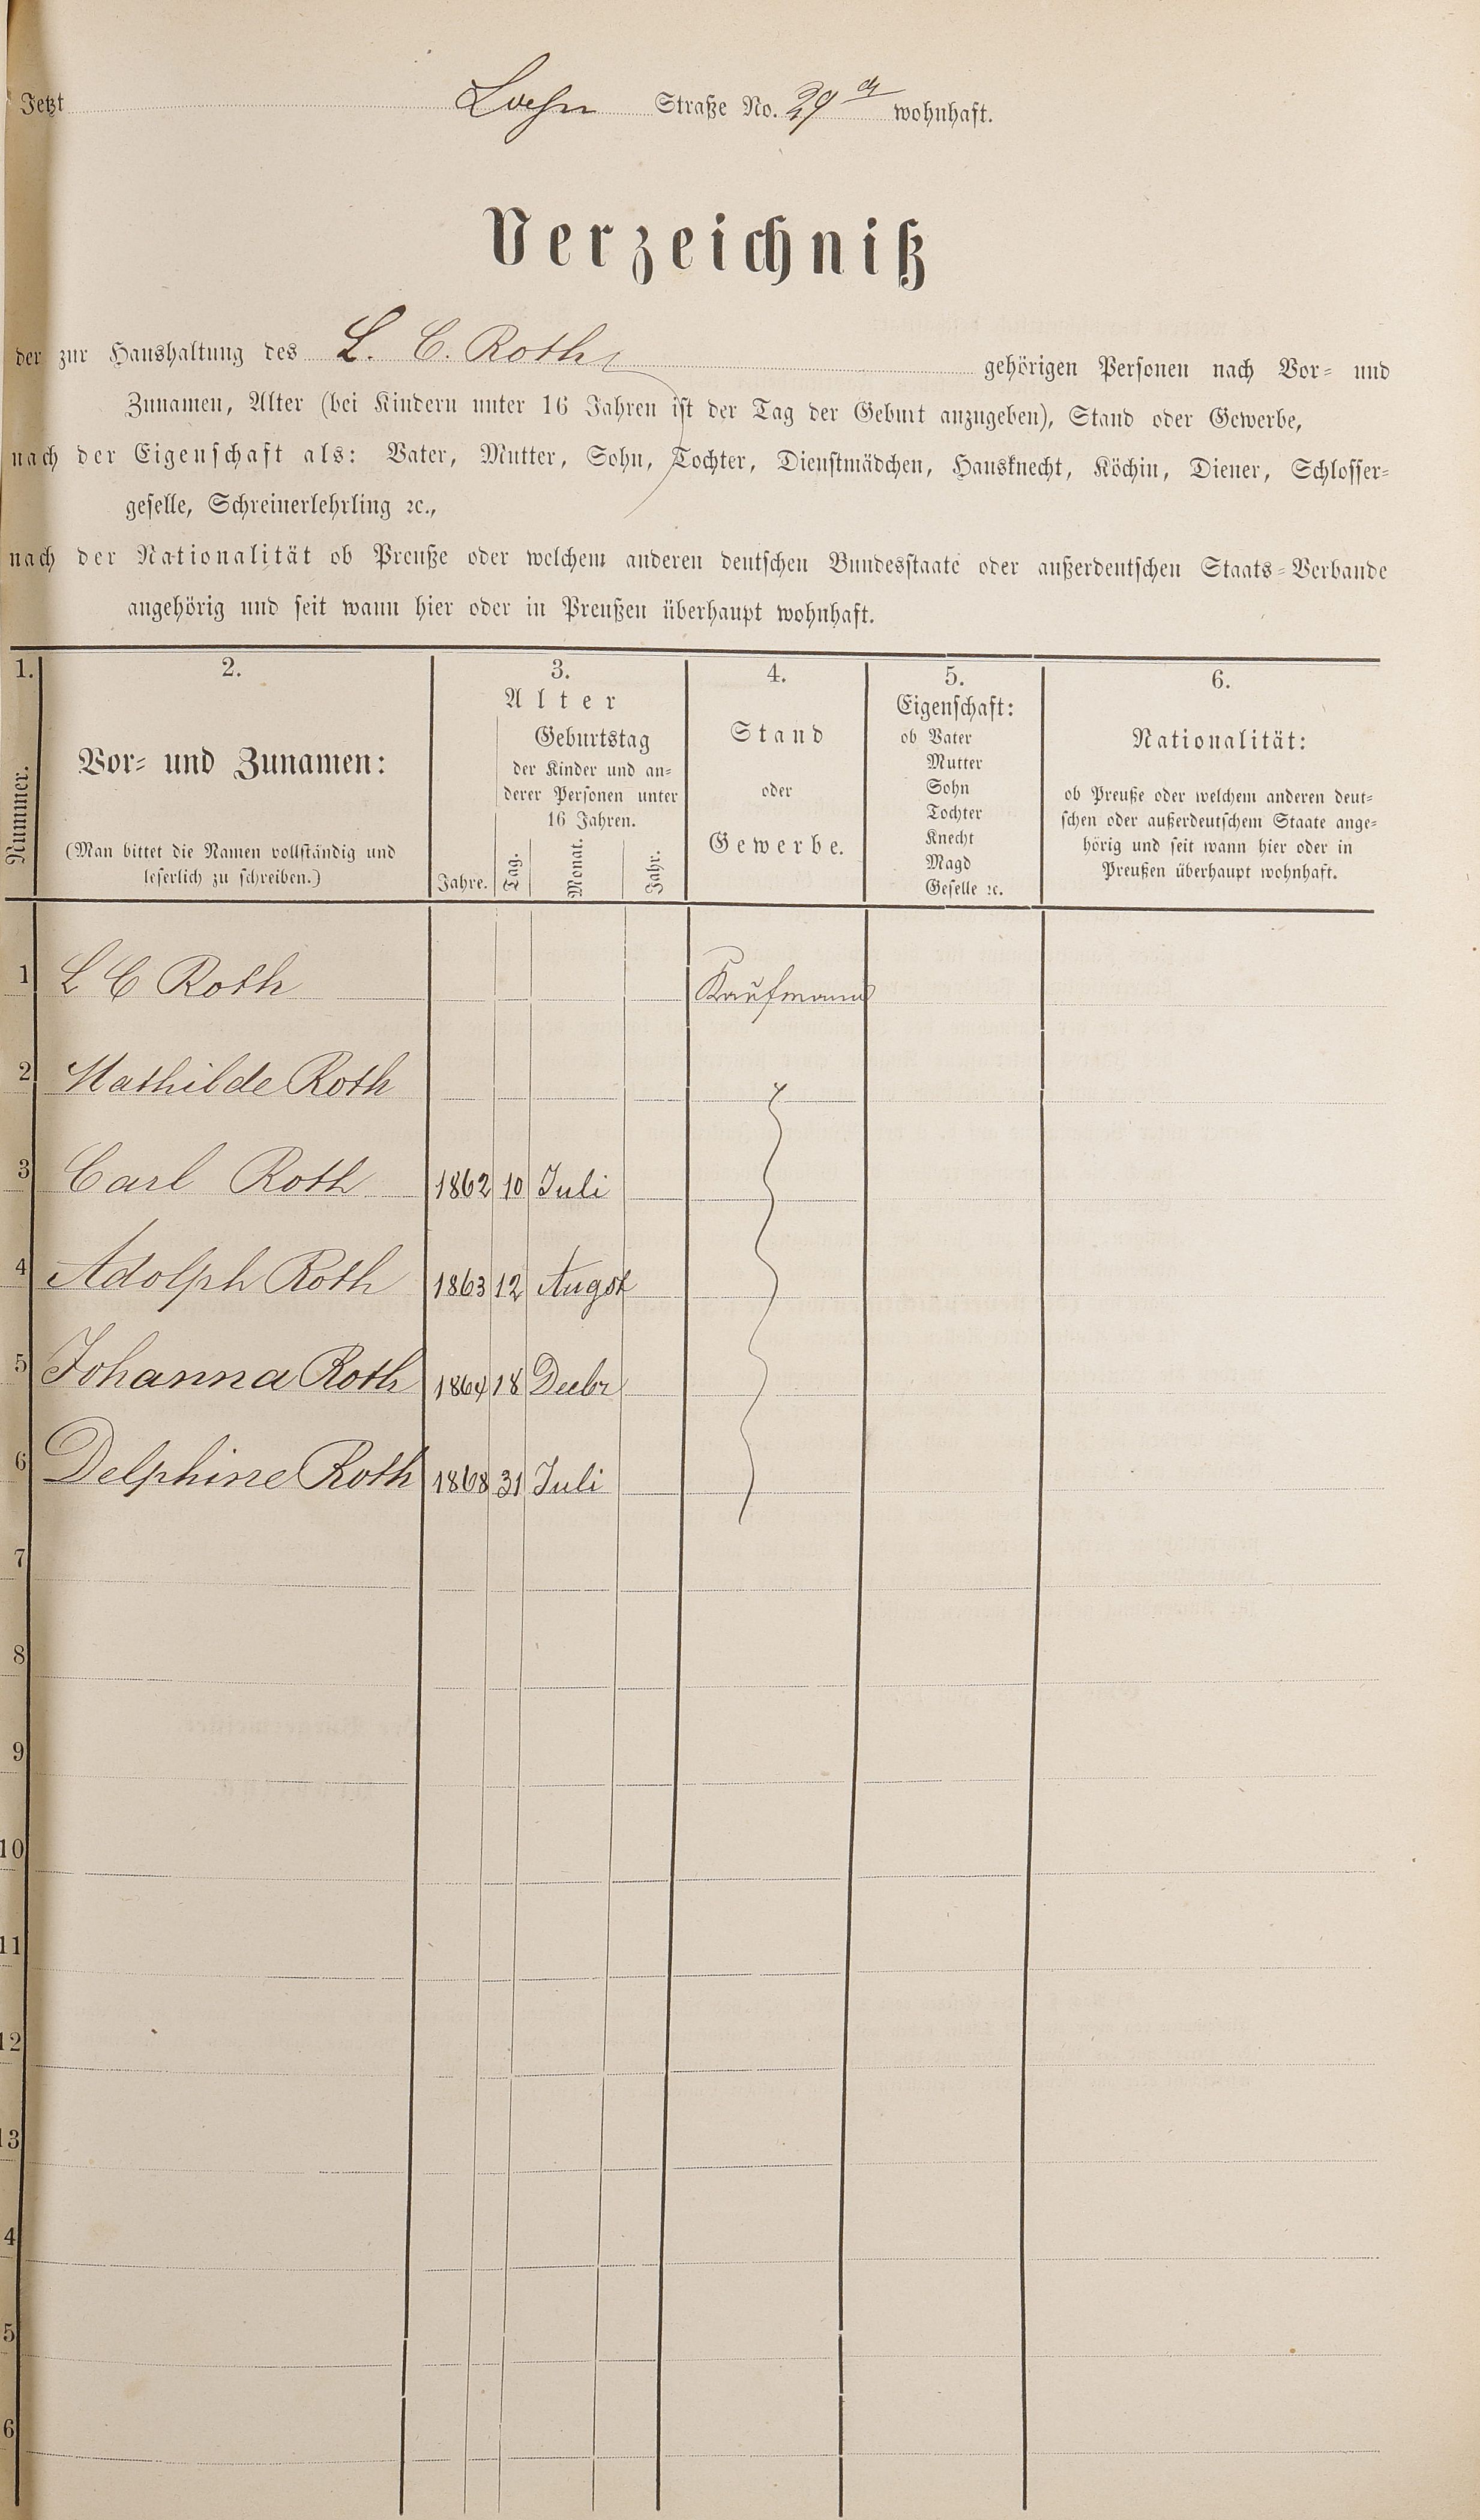 Jetzt Straße No. 29 a wohnhaft.
Verzeichniß
der zur Haushaltung des L. C. Roth gehörigen Personen nach Vor- und
Zunamen, Alter (bei Kindern unter 16 Jahren ist der Tag der Geburt anzugeben), Stand oder Gewerbe,
nach der Eigenschaft als: Vater, Mutter, Sohn, Tochter, Dienstmädchen, Hausknecht, Köchin, Diener, Schlosser-
geselle, Schreinerlehrling ꝛc.,
nach der Nationalität ob Preuße oder welchem anderen deutschen Bundesstaate oder außerdeutschen Staats-Verbande
angehörig und seit wann hier oder in Preußen überhaupt wohnhaft.
1.
Nummer.
2.
Vor- und Zunamen:
(Man bittet die Namen vollständig und
leserlich zu schreiben.)
3.
Alter
Geburtstag
der Kinder und an-
derer Personen unter
16 Jahren.
Jahre. Tag. Monat. Jahr.
4.
Stand
oder
Gewerbe.
5.
Eigenschaft:
ob Vater
Mutter
Sohn
Tochter
Knecht
Magd
Geselle ꝛc.
6.
Nationalität:
ob Preuße oder welchem anderen deut-
schen oder außerdeutschem Staate ange-
hörig und seit wann hier oder in
Preußen überhaupt wohnhaft.
1 L C Roth Kaufmann
2 Mathilde Roth
3 Carl Roth 1862 10 Juli
4 Adolph Roth 1863 12 Augst
5 Johanna Roth 1864 18 Decbr
6 Delphine Roth 1868 31 Juli
7
8
9
10
11
12
13
4
5
6